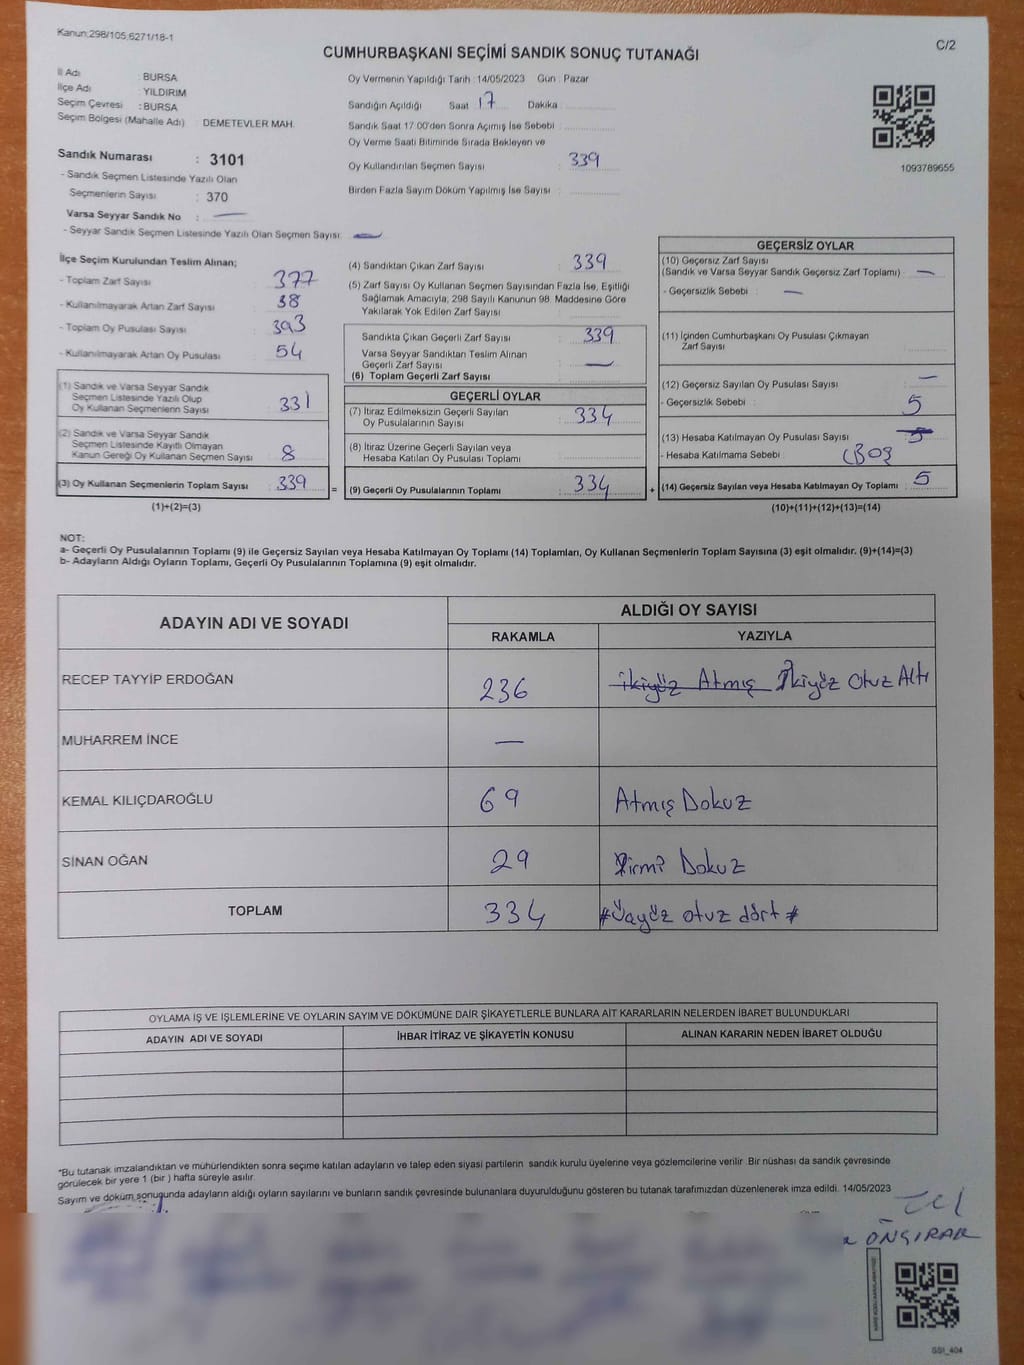 Kanun:298/105,6271/18-1
C/2
CUMHURBAŞKANI SEÇİMİ SANDIK SONUÇ TUTANAĞI
İl Adı : BURSA
İlçe Adı : YILDIRIM
Seçim Çevresi : BURSA
Seçim Bölgesi (Mahalle Adı) DEMETEVLER MAH.
Sandık Numarası : 3101
- Sandık Seçmen Listesinde Yazılı Olan
Seçmenlerin Sayısı : 370
Varsa Seyyar Sandık No : —
- Seyyar Sandık Seçmen Listesinde Yazılı Olan Seçmen Sayısı: —
Oy Vermenin Yapıldığı Tarih :14/05/2023 Gün : Pazar
Sandığın Açıldığı Saat 17 Dakika
Sandık Saat 17:00'den Sonra Açımış İse Sebebi
Oy Verme Saati Bitiminde Sırada Bekleyen ve
Oy Kullandırılan Seçmen Sayısı : 339
Birden Fazla Sayım Döküm Yapılmış İse Sayısı
1093789655
İlçe Seçim Kurulundan Teslim Alınan;
- Toplam Zarf Sayısı : 377
- Kullanılmayarak Artan Zarf Sayısı : 38
- Toplam Oy Pusulası Sayısı : 393
- Kullanılmayarak Artan Oy Pusulası : 54
(1) Sandık ve Varsa Seyyar Sandık
Seçmen Listesinde Yazılı Olup
Oy Kullanan Seçmenlerin Sayısı : 331
(2) Sandık ve Varsa Seyyar Sandık
Seçmen Listesinde Kayıtlı Olmayan
Kanun Gereği Oy Kullanan Seçmen Sayısı : 8
(3) Oy Kullanan Seçmenlerin Toplam Sayısı : 339
(1)+(2)=(3)
(4) Sandıktan Çıkan Zarf Sayısı : 339
(5) Zarf Sayısı Oy Kullanan Seçmen Sayısından Fazla İse, Eşitliği
Sağlamak Amacıyla, 298 Sayılı Kanunun 98. Maddesine Göre
Yakılarak Yok Edilen Zarf Sayısı
Sandıkta Çıkan Geçerli Zarf Sayısı : 339
Varsa Seyyar Sandıktan Teslim Alınan
Geçerli Zarf Sayısı : —
(6) Toplam Geçerli Zarf Sayısı
GEÇERLİ OYLAR
(7) İtiraz Edilmeksizin Geçerli Sayılan
Oy Pusulalarının Sayısı : 334
(8) İtiraz Üzerine Geçerli Sayılan veya
Hesaba Katılan Oy Pusulası Toplamı
= (9) Geçerli Oy Pusulalarının Toplamı : 334
GEÇERSİZ OYLAR
(10) Geçersiz Zarf Sayısı
(Sandık ve Varsa Seyyar Sandık Geçersiz Zarf Toplamı) : —
- Geçersizlik Sebebi : —
(11) İçinden Cumhurbaşkanı Oy Pusulası Çıkmayan
Zarf Sayısı
(12) Geçersiz Sayılan Oy Pusulası Sayısı : —
- Geçersizlik Sebebi : 5
(13) Hesaba Katılmayan Oy Pusulası Sayısı : 5
- Hesaba Katılmama Sebebi : (BOŞ
+ (14) Geçersiz Sayılan veya Hesaba Katılmayan Oy Toplamı : 5
(10)+(11)+(12)+(13)=(14)
NOT:
a- Geçerli Oy Pusulalarının Toplamı (9) ile Geçersiz Sayılan veya Hesaba Katılmayan Oy Toplamı (14) Toplamları, Oy Kullanan Seçmenlerin Toplam Sayısına (3) eşit olmalıdır. (9)+(14)=(3)
b- Adayların Aldığı Oyların Toplamı, Geçerli Oy Pusulalarının Toplamına (9) eşit olmalıdır.
ADAYIN ADI VE SOYADI ALDIĞI OY SAYISI
RAKAMLA YAZIYLA
RECEP TAYYİP ERDOĞAN 236 ikiyüz Atmış İkiyüz Otuz Altı
MUHARREM İNCE —
KEMAL KILIÇDAROĞLU 69 Atmış Dokuz
SİNAN OĞAN 29 Yirmi Dokuz
TOPLAM 334 #Üçyüz otuz dört#
OYLAMA İŞ VE İŞLEMLERİNE VE OYLARIN SAYIM VE DÖKÜMÜNE DAİR ŞİKAYETLERLE BUNLARA AİT KARARLARIN NELERDEN İBARET BULUNDUKLARI
ADAYIN ADI VE SOYADI İHBAR İTİRAZ VE ŞİKAYETİN KONUSU ALINAN KARARIN NEDEN İBARET OLDUĞU
*Bu tutanak imzalandıktan ve mühürlendikten sonra seçime katılan adayların ve talep eden siyasi partilerin sandık kurulu üyelerine veya gözlemcilerine verilir. Bir nüshası da sandık çevresinde
görülecek bir yere 1 (bir ) hafta süreyle asılır.
Sayım ve döküm sonuçunda adayların aldığı oyların sayılarını ve bunların sandık çevresinde bulunanlara duyurulduğunu gösteren bu tutanak tarafımızdan düzenlenerek imza edildi. 14/05/2023
ÖNGIRAK
GSI_404